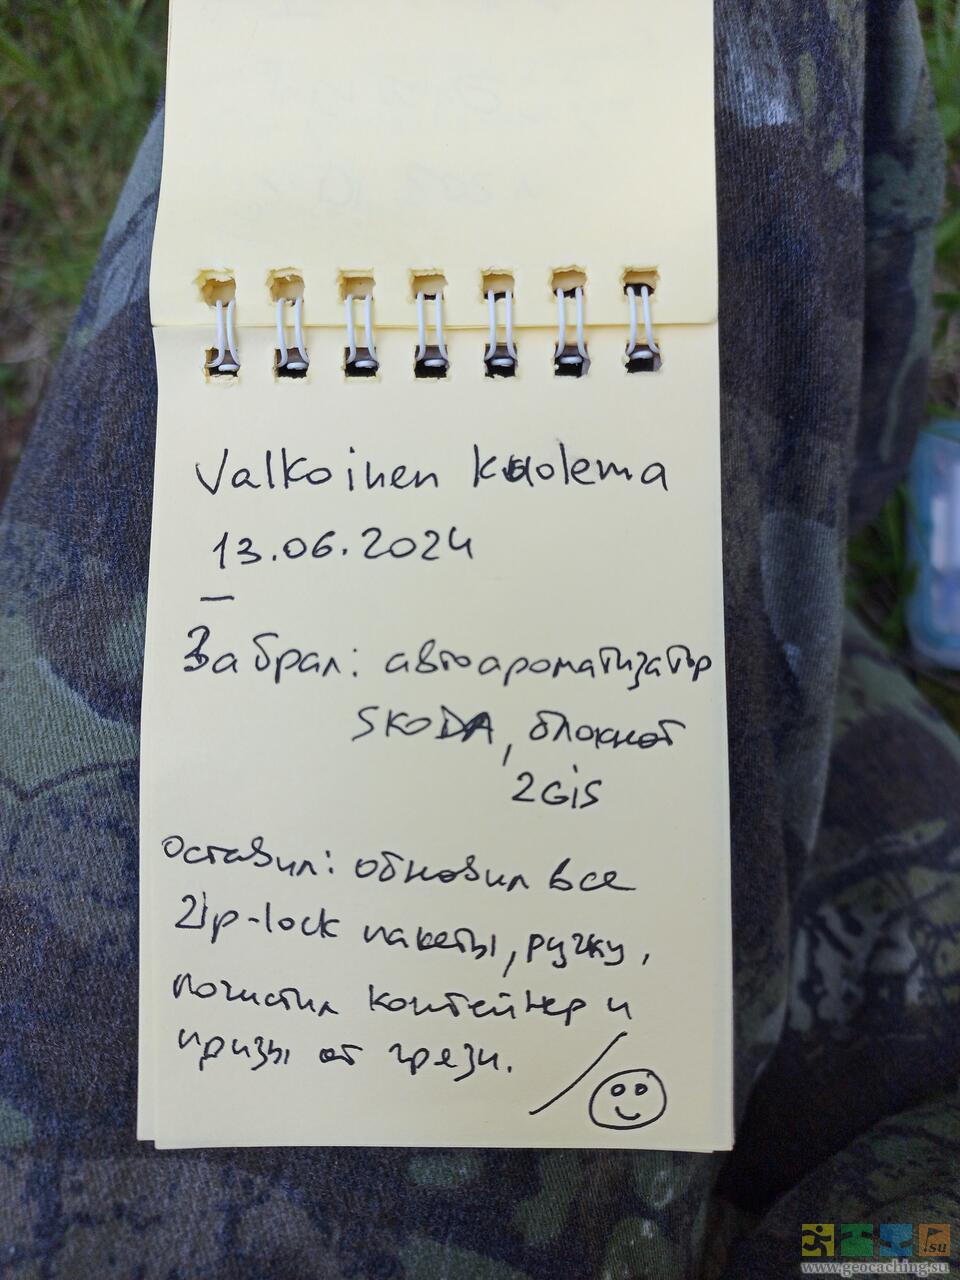 Valkoinen kuolema
13.06.2024
—
Забрал: автоароматизатор
SKODA, блокнот
2GiS
Оставил: обновил все
Zip-lock пакеты, ручку,
почистил контейнер и
призы от грязи.
.su
www.geocaching.su